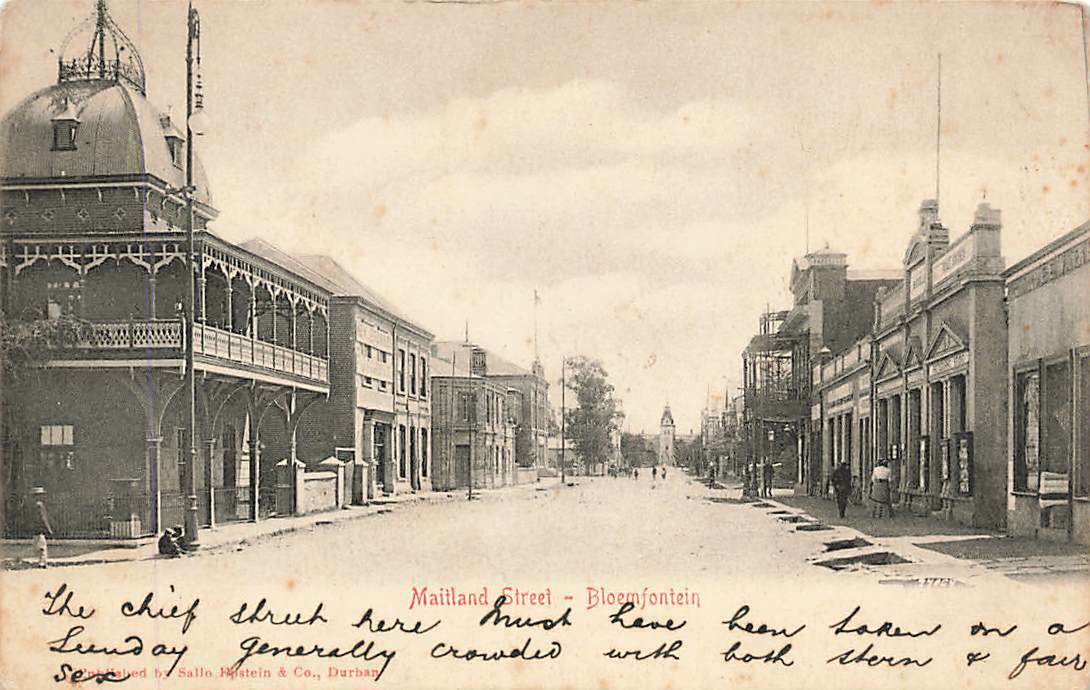 Maitland Street - Bloemfontein
The chief street here Must have been taken on a
Sunday generally crowded with both stern & fair
sex
Published by Sallo Epstein & Co., Durban